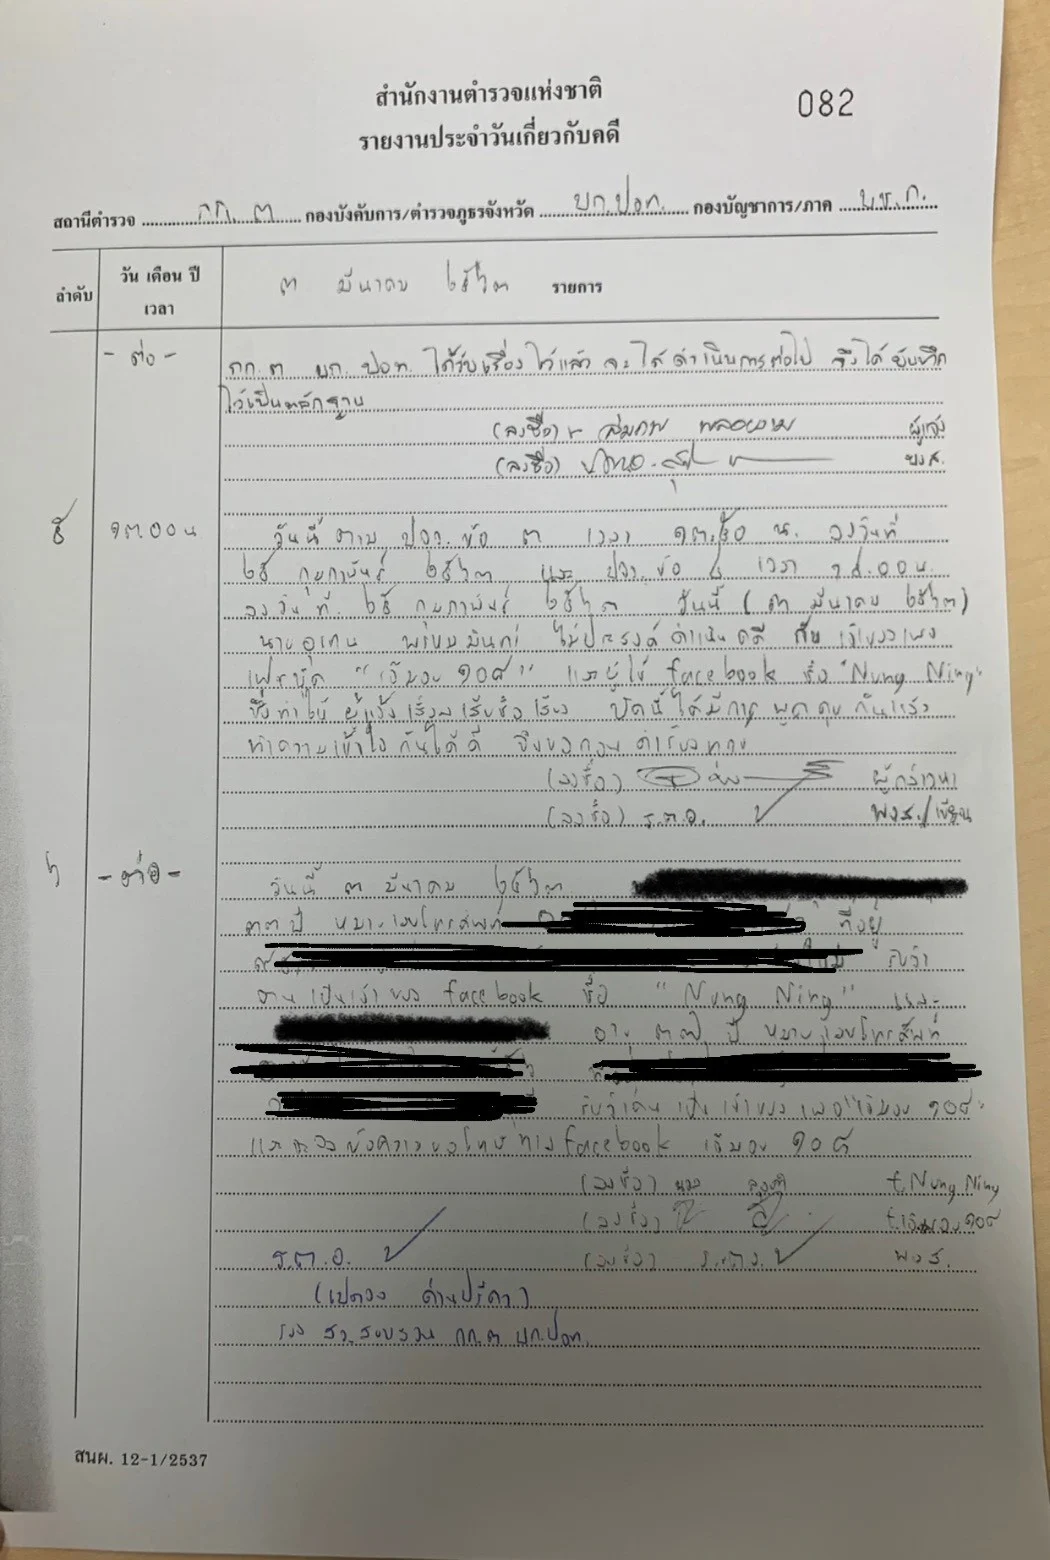 สำนักงานตำรวจแห่งชาติ
รายงานประจำวันเกี่ยวกับคดี
082
สถานีตำรวจ กก. ๓ กองบังคับการ/ตำรวจภูธรจังหวัด บก.ปอท. กองบัญชาการ/ภาค บช.ก.
ลำดับ
วัน เดือน ปี
เวลา
๓ มีนาคม ๒๕๖๓ รายการ
- ต่อ -
กก.๓ บก. ปอท. ได้รับเรื่องไว้แล้ว จะได้ดำเนินการต่อไป จึงได้บันทึก
ไว้เป็นหลักฐาน
(ลงชื่อ) ผู้แจ้ง
(ลงชื่อ) พงส.
๕ ๑๓.๐๐ น
วันนี้ ตาม ปจว. ข้อ ๓ เวลา ๑๓.๕๐ น. ลงวันที่
๒๕ กุมภาพันธ์ ๒๕๖๓ และ ปจว. ข้อ เวลา น.
ลงวันที่ ๒๕ กุมภาพันธ์ ๒๕๖๓ วันนี้ (๓ มีนาคม ๒๕๖๓)
นาย ไม่ประสงค์ดำเนินคดี กับ เจ้าของเพจ
เฟซบุ๊ค "เจ๊มอย ๑๐๘" และผู้ใช้ facebook ชื่อ "Nung Ning"
ซึ่งทำให้ ผู้แจ้งเสื่อมเสียชื่อเสียง บัดนี้ได้มีการพูดคุยกันแล้ว
ทำความเข้าใจกันได้ดี จึงขอถอนคำร้องทุกข์
(ลงชื่อ) ผู้กล่าวหา
(ลงชื่อ) ร.ต.อ. พงส./เขียน
๖ - ต่อ -
วันนี้ ๓ มีนาคม ๒๕๖๓
๓๓ ปี หมายเลขโทรศัพท์ ที่อยู่
รับว่า
ตนเป็นเจ้าของ facebook ชื่อ "Nung Ning" และ
อายุ ปี หมายเลขโทรศัพท์
รับว่าตนเป็นเจ้าของเพจ "เจ๊มอย ๑๐๘"
และจะลงข้อความขอโทษทาง facebook เจ๊มอย ๑๐๘
(ลงชื่อ) f.Nung Ning
(ลงชื่อ) f.เจ๊มอย ๑๐๘
ร.ต.อ. (ลงชื่อ) ร.ต.อ. พงส.
รอง สว.สอบสวน กก.๓ บก.ปอท.
สนผ. 12-1/2537